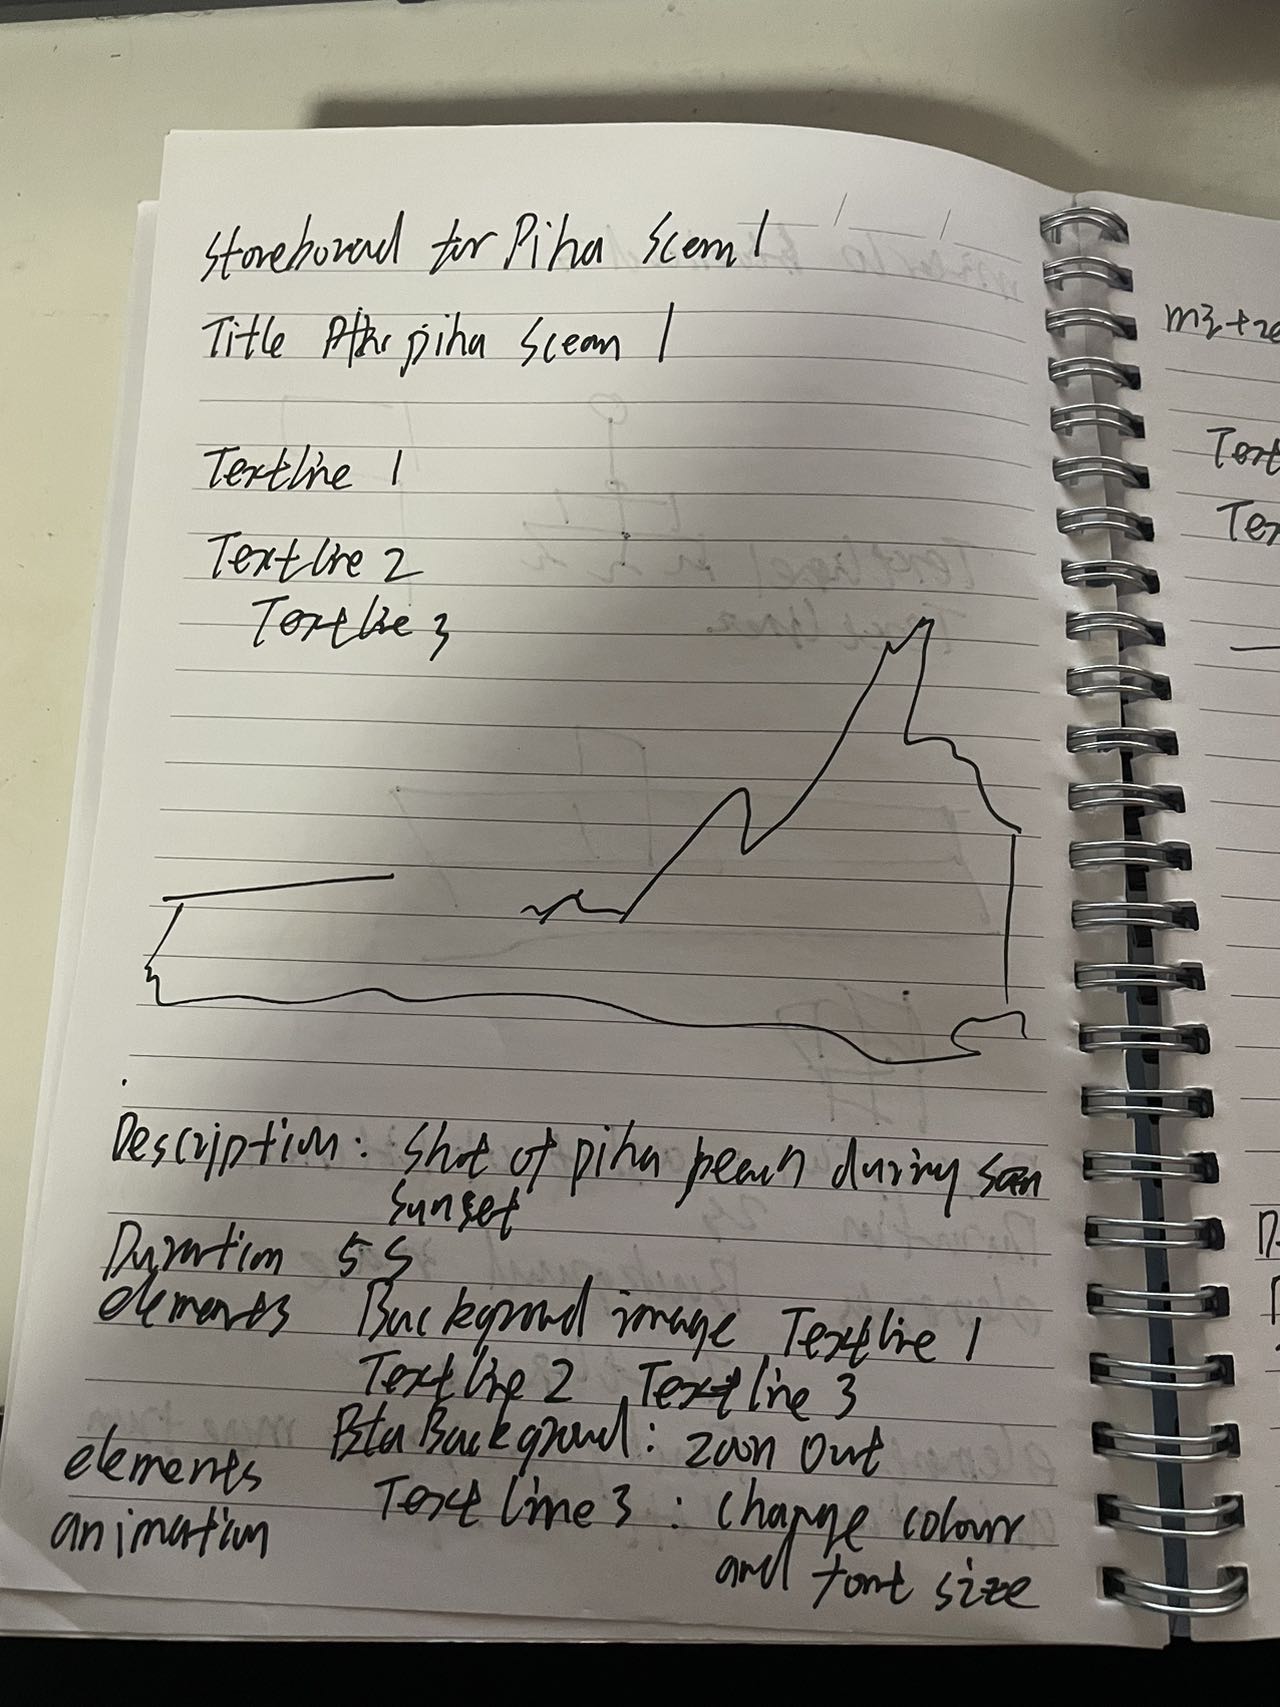 Storeboread for Piha Scean 1
Title piha Scean 1
Textline 1
Textline 2
Textline 3
Description: Shot of piha peach during
sunset
Duration 5s
elements Backgroud image Textline 1
Textline 2 Textline 3
Backgroud: zoon out
elements
animation
Text line 3 : change colour
and font size
m
Text
Tex